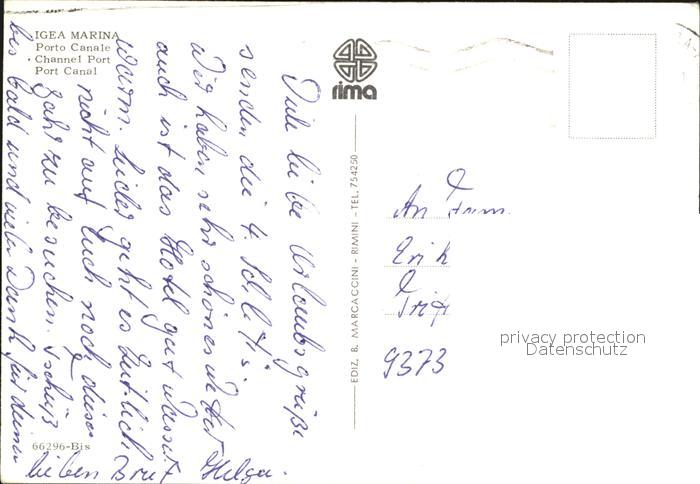 IGEA MARINA
Porto Canale
Channel Port
Port Canal
rima
EDIZ. B. MARCACCINI - RIMINI - TEL. 754250
Viele liebe Urlaubsgrüße
senden die 4
Wir haben sehr schönes Wetter
auch ist das Hotel gut Wasser
warm. Leider geht es zeitlich
nicht auf Euch noch dieses
Jahr zu besuchen. Tschüß
bis bald und viel Dank für deinen
lieben Brief Helga.
An Fam.
Erik
9373
privacy protection
Datenschutz
66296-Bis